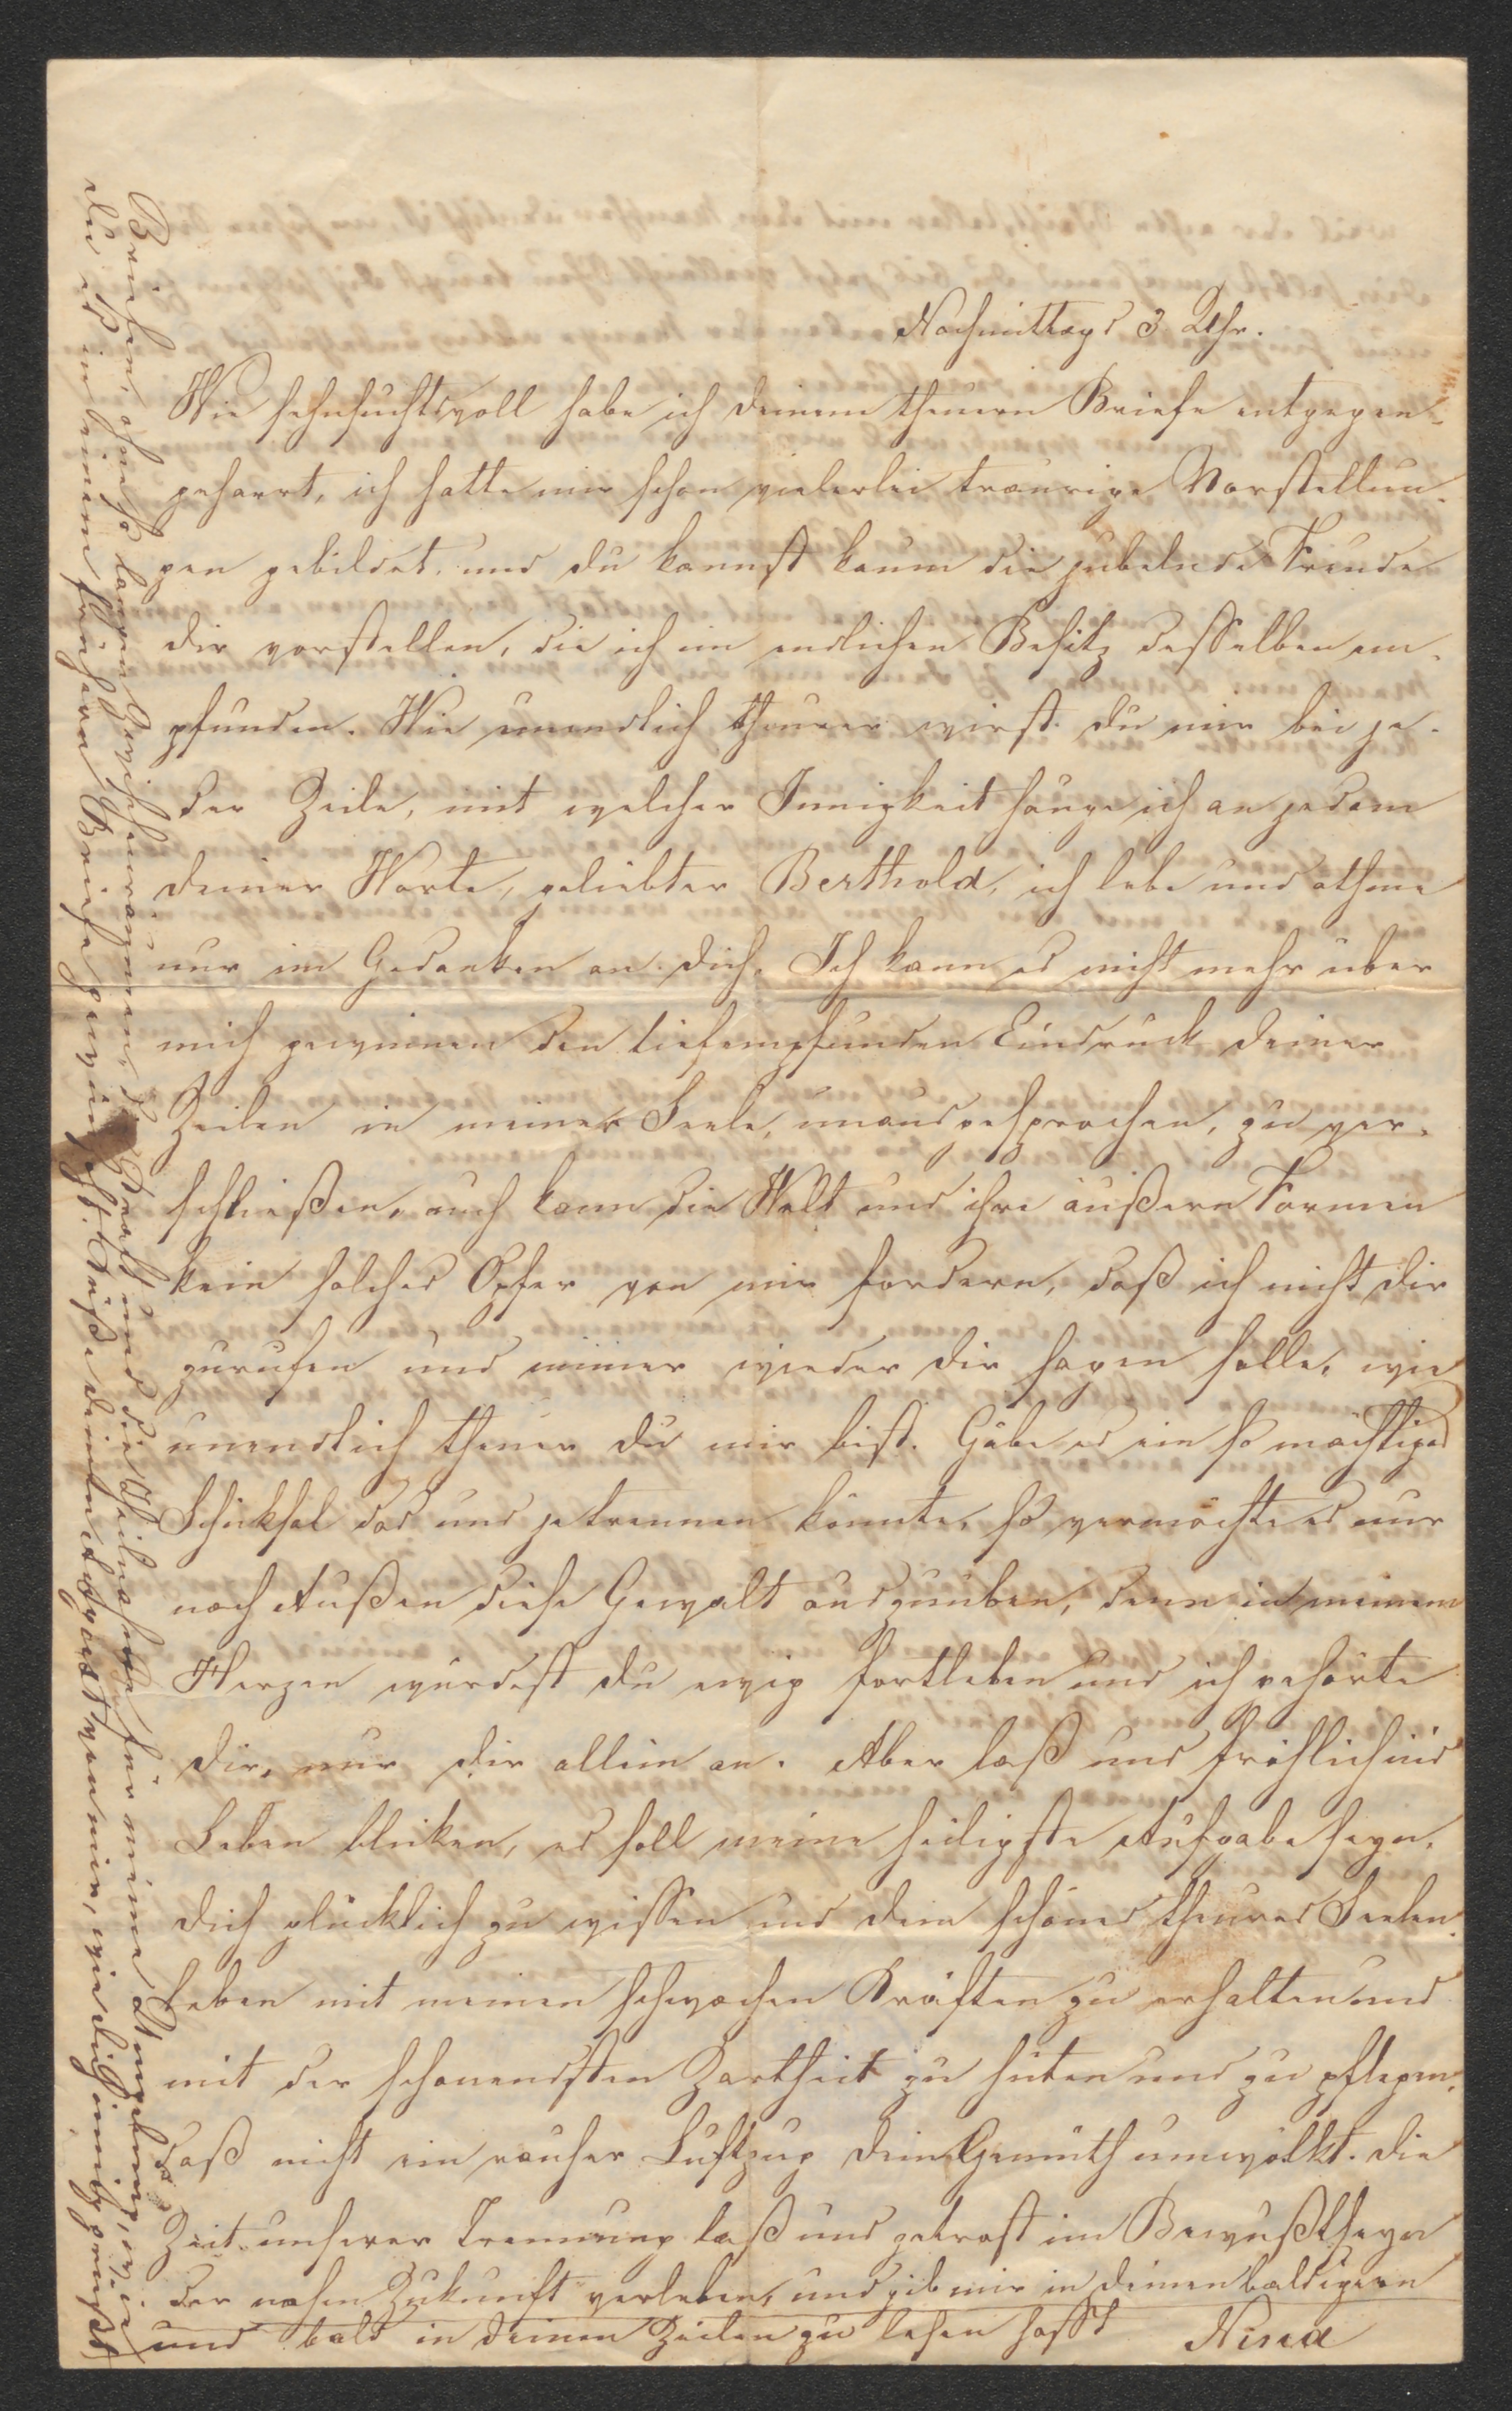 Nachmittags 3 Uhr.
Wie sehnsuchtsvoll habe ich deinem theuern Briefe entgegen-
geharrt, ich hatte mir schon vielerlei traurige Vorstellun-
gen gebildet, und du kannst kaum die jubelnde Freude
dir vorstellen, die ich im endlichen Besitz desselben em-
pfunden. Wie unendlich theurer wirst du mir bei je-
der Zeile, mit welcher Innigkeit hänge ich an jedem
deiner Worte, geliebter Berthold, ich lebe und athme
nur im Gedanken an dich. Ich kann es nicht mehr über
mich gewinnen den tiefempfunden Eindruck deiner
Zeilen in meiner Seele, unausgesprochen, zu ver-
schließen, auch kann die Welt und ihre äußern Formen
kein solches Opfer von mir fordern, daß ich nicht dir
zurufen und immer wieder dir sagen solle, wie
unendlich theuer du mir bist. Gäbe es ein so mächtiges
Schicksal das uns je trennen könnte, so vermöchte es nur
nach Außen diese Gewalt auszuüben, denn in meinem
Herzen würdest du ewig fortleben und ich gehörte
dir, nur dir allein an. Aber laß uns fröhlich ins
Leben blicken, es soll meine heiligste Aufgabe seyn,
dich glücklich zu wissen und dein schönes theures Seelen-
leben mit meinen schwachen Kräften zu erhalten und
mit der schonendsten Zartheit zu hüten und zu pflegen,
daß nicht ein rauher Luftzug dein Gemüth umwölkt. Die
Zeit unserer Trennung laß uns getrost im Bewußtseyn
der nahen Zukunft verleben, und gib mir in deinen baldigern
Briefen, ohne so langen Zwischenräumen die Kraft und die Theilnahme für meine Umgebung, wie
du es in deinem früheren Briefe gewünscht. Küße deinen von mir, wie dich innig grüßt
und bald in deinen Zeilen zu lesen hofft Nina